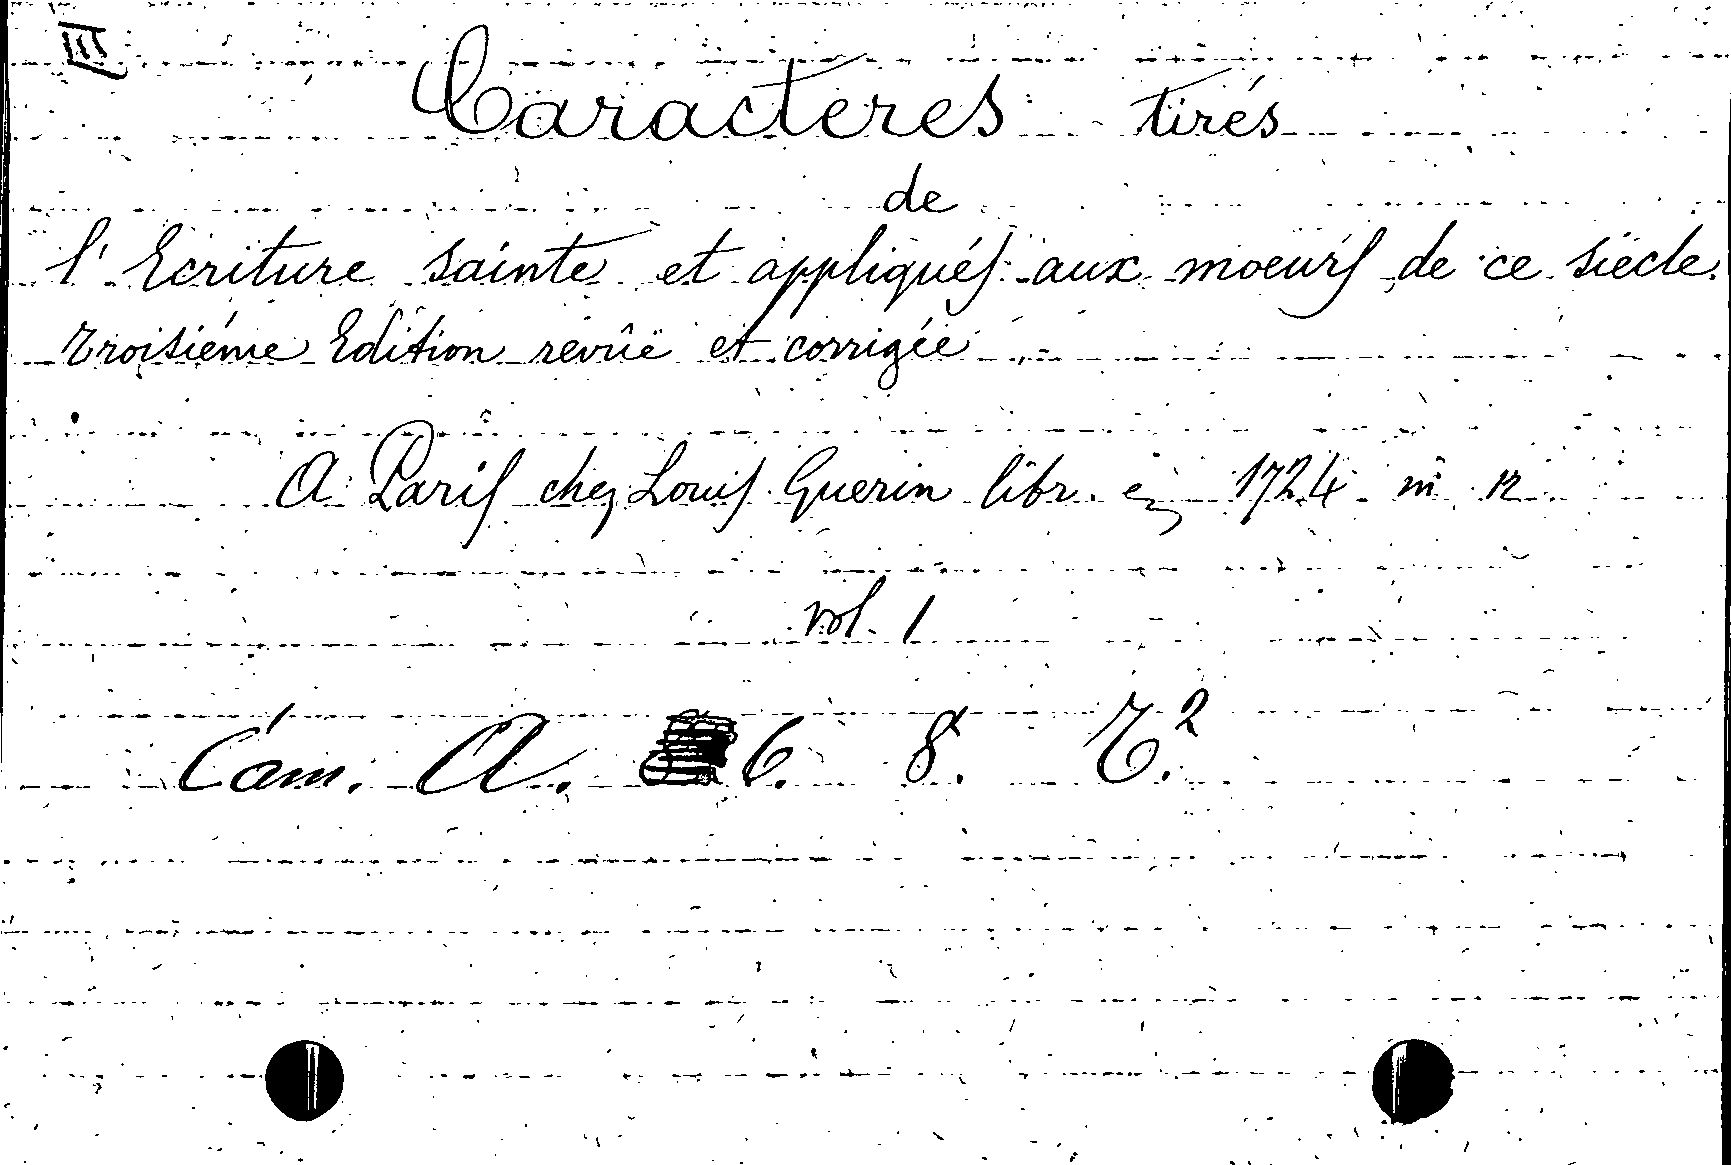 III
Caracteres tirés
de
l'Ecriture sainte et appliqués aux moeurs de ce siècle.
troisiéme Edition revûë et corrigée
A Paris chez Louis Guerin libr. en 1724 in 12
vol. 1
Cam. A. 6. 8. T.²